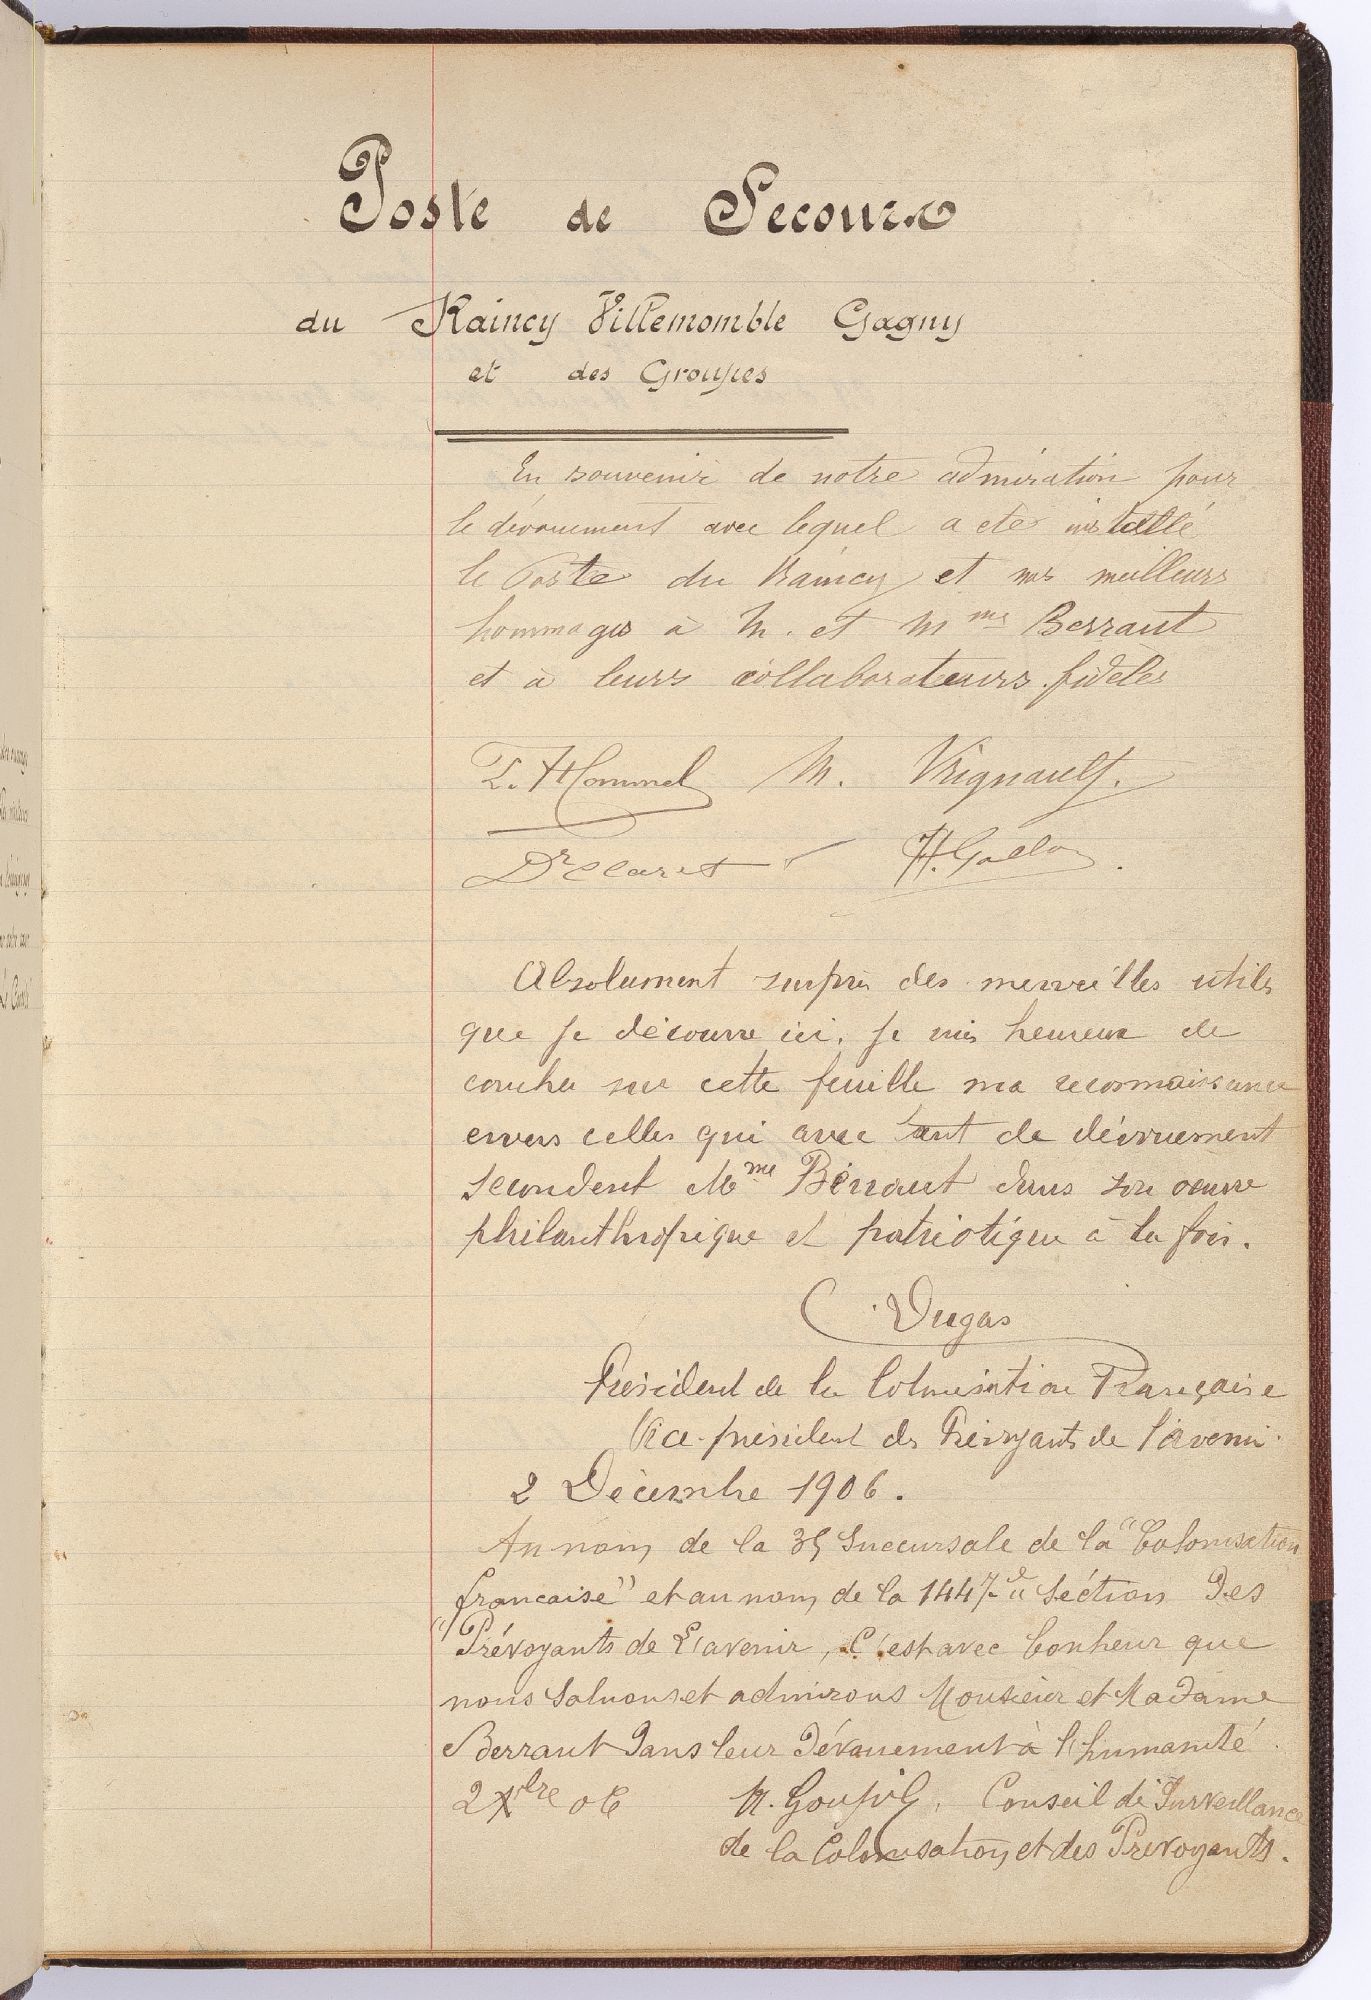 Poste de Secours
du Raincy Villemomble Gagny
et des Groupes
En souvenir de notre admiration pour
le dévouement avec lequel a été installé
le Poste du Raincy et nos meilleurs
hommages à M. et Mme Berraut
et à leurs collaborateurs fidèles
L. Hommel M. Vrignault.
Dr Claret H. Gallo
Absolument surpris des merveilles utiles
que je découvre ici, je suis heureux de
coucher sur cette feuille ma reconnaissance
envers celles qui avec tant de dévouement
secondent Mme Bérraut dans son œuvre
philanthropique et patriotique à la fois.
C. Dugas
Président de la Colonisation Française
Vice-président des Prévoyants de l'avenir.
2 Décembre 1906.
Au nom de la 35 Succursale de la "Colonisation
française" et au nom de la 1447e Section des
"Prévoyants de L'avenir, C'est avec bonheur que
nous saluons et admirons Monsieur et Madame
Berraut dans leur dévouement à l'humanité.
2 Xbre 06 H. Goupil, Conseil de Surveillance
de la Colonisation et des Prévoyants.